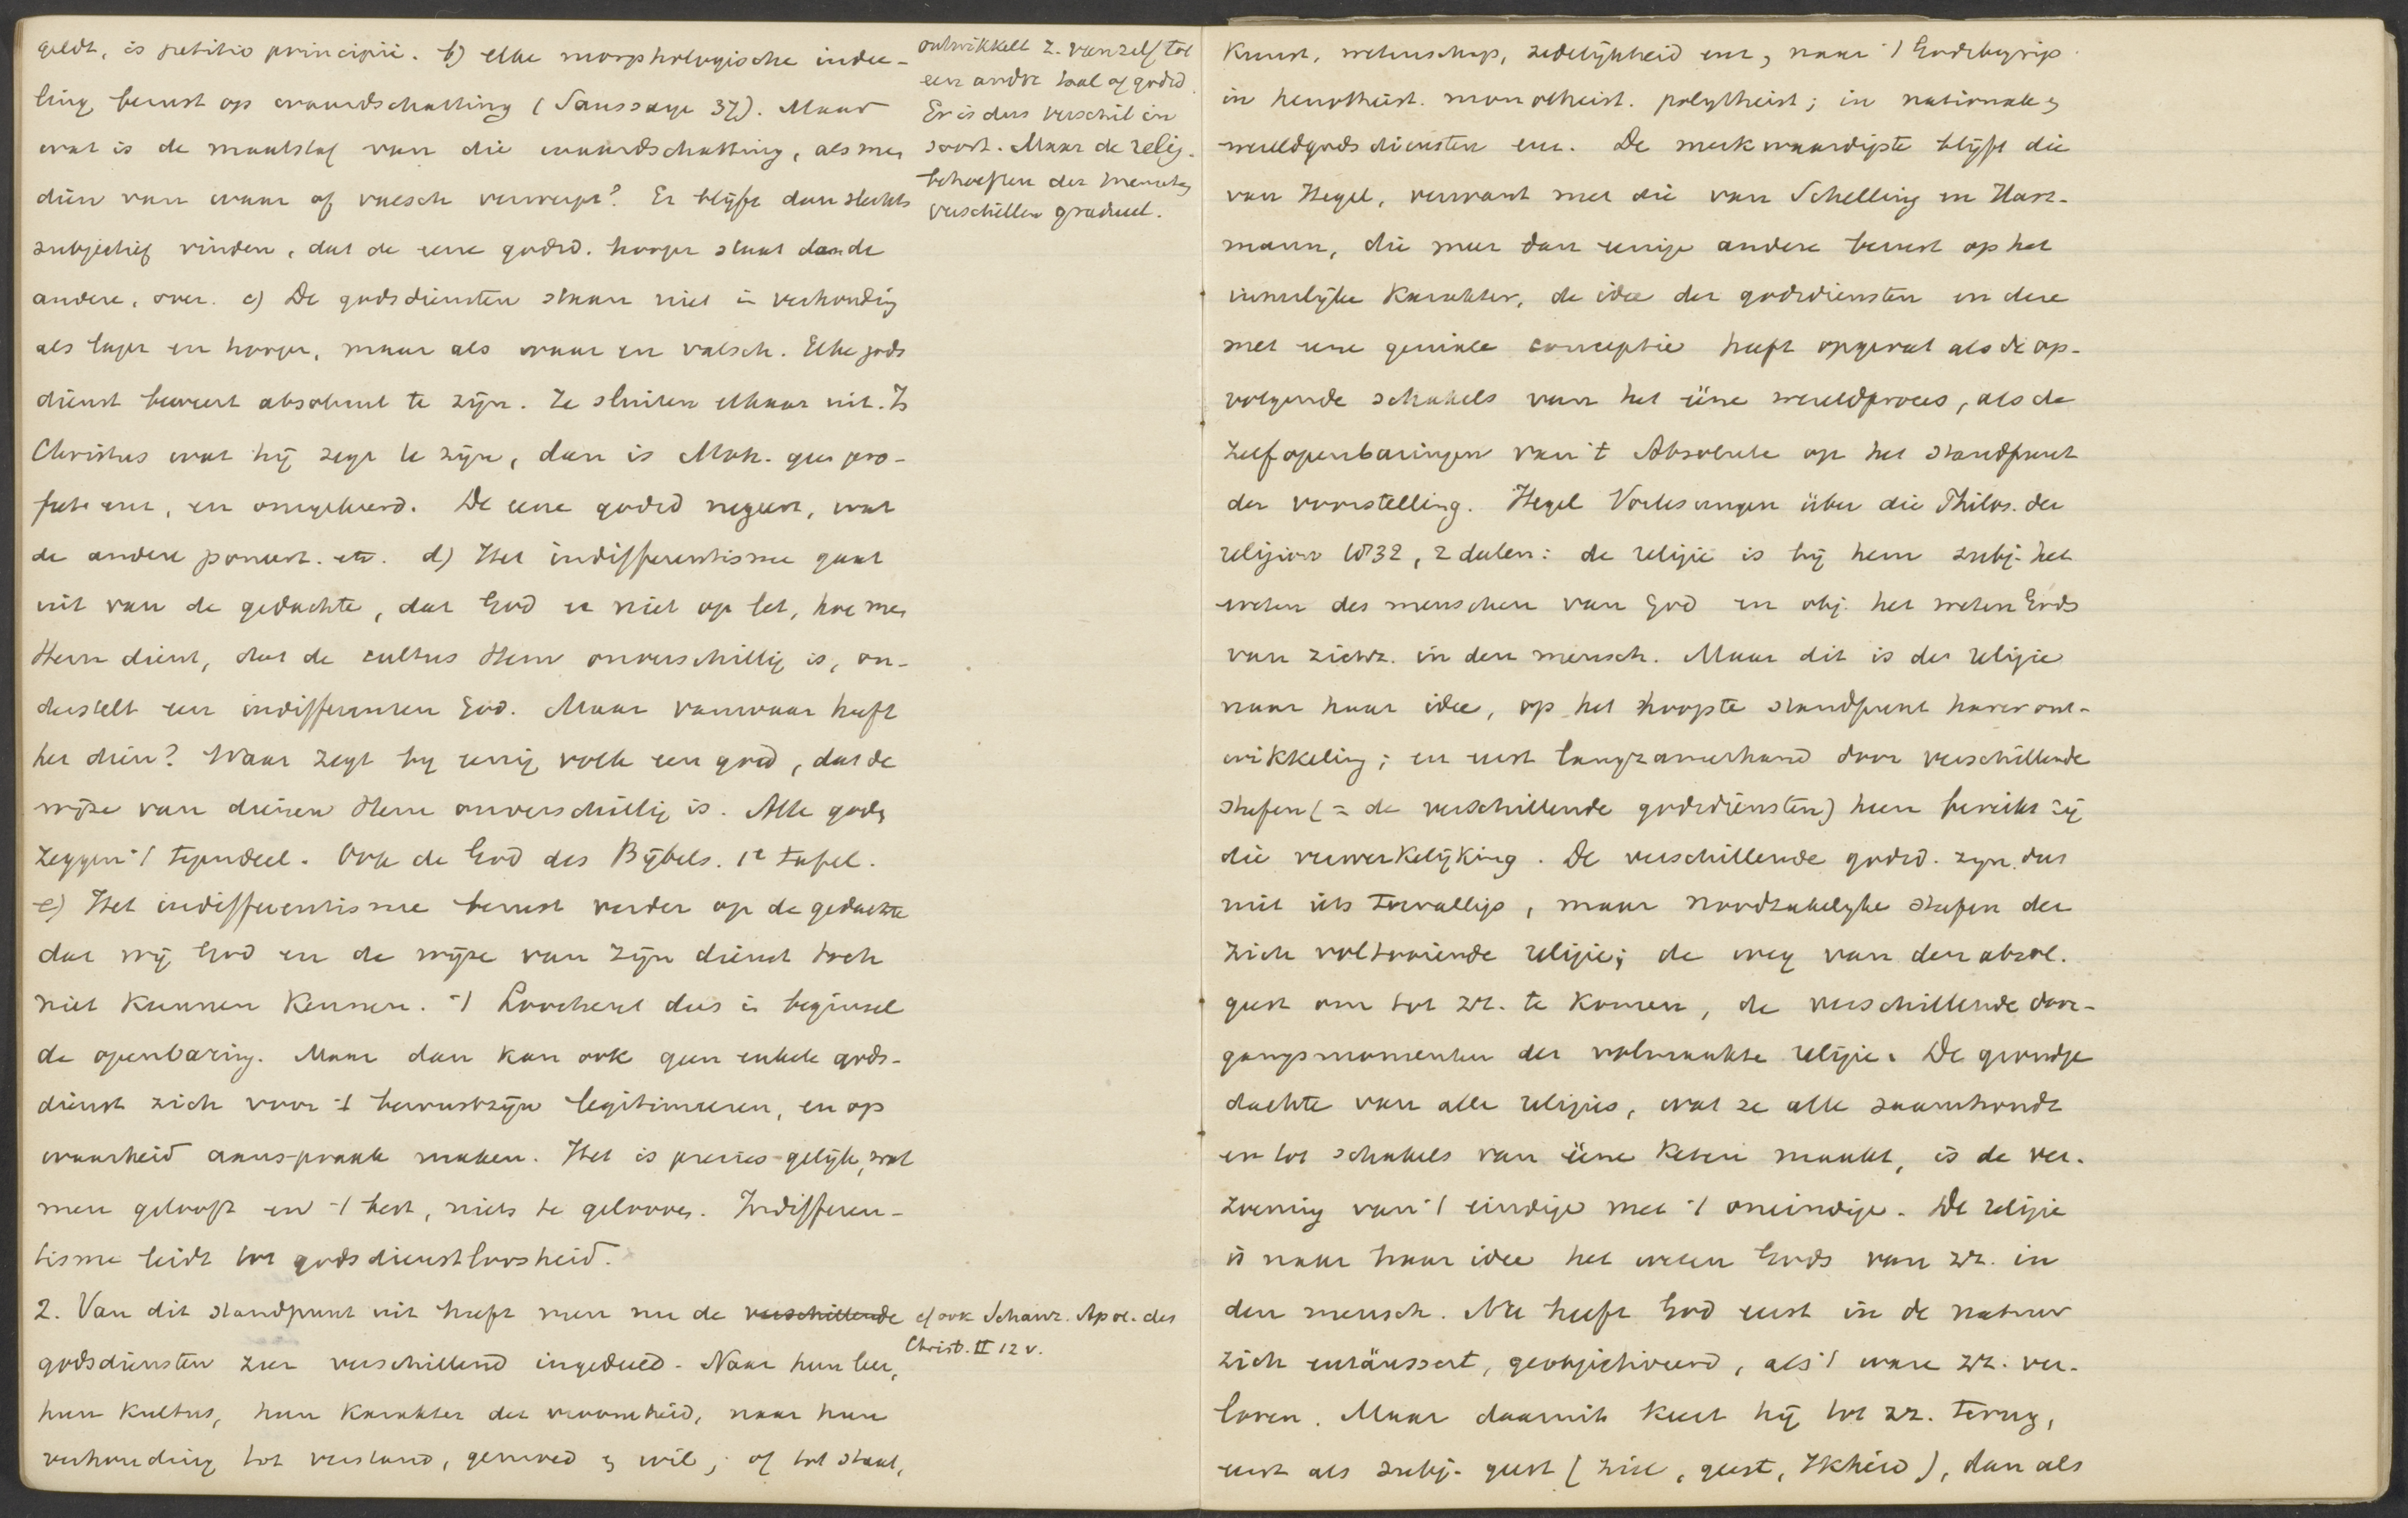 geldt, is petitio principii. b) elke morphologische indee-
ling berust op waardschatting (Saussaye 37). Maar
wat is de maatstaf van die waardschatting, als men
dien van waar of valsch verwerpt? Er blijft dan slechts
subjectief vinden, dat de eene godsd. hooger staat dan de
andere, over. c) De godsdiensten staan niet in verhouding
als lager en hooger, maar als waar en valsch. Elke gods
dienst beweert absoluut te zijn. Ze sluiten elkaar uit. Is
Christus wat hij zegt te zijn, dan is Moh. geen pro-
feet enz, en omgekeerd. De eene godsd negeert, wat
de andere poneert. etc. d) Het indifferentisme gaat
uit van de gedachte, dat God er niet op let, hoe men
Hem dient, dat de cultus Hem onverschillig is, on-
derstelt een indifferenten God. Maar vanwaar heeft
het dien? Waar zegt bij eenig volk een god, dat de
wijze van dienen Hem onverschillig is. Alle goden
zeggen 't tegendeel. Ook de God des Bijbels. 1e tafel.
e) Het indifferentisme berust verder op de gedachte
dat wij God en de wijze van zijn dienst toch
niet kunnen kennen. 't Loochent dus in beginsel
de openbaring. Maar dan kan ook geen enkele gods-
dienst zich voor 't bewustzijn legitimeeren, en op
waarheid aanspraak maken. Het is precies gelijk, wat
men gelooft en 't best, niets te gelooven. Indifferen-
tisme leidt tot godsdienstloosheid.
2. Van dit standpunt uit heeft men nu de verschillende
godsdiensten zeer verschillend ingedeeld. Naar hun leer,
hun kultus, hun karakter der vroomheid, naar hun
verhouding tot verstand, gemoed en wil; of tot staat,
ontwikkelt z. van zelf tot
een andre taal of godsd.
Er is dus verschil in
soort. Maar de relig.
behoeften der menschen
verschillen gradueel.
cf ook Schanz. Apol. des
Christ. II 12 v.
Kunst, wetenschap, zedelijkheid enz, naar 't Godsbegrip
in henotheist. monotheist. polytheist; in nationale en
wereldgodsdiensten enz. De merkwaardigste blijft die
van Hegel, verwant met die van Schelling en Hart-
mann, die meer dan eenige andere berust op het
innerlijke karakter, de idee der godsdiensten en deze
met eene geniale conceptie heeft opgevat als de op-
volgende schakels van het ééne wereldproces, als de
zelfopenbaringen van 't Absolute op het standpunt
der voorstelling. Hegel Vorlesungen über die Philos. der
religion 1832, 2 deelen: de religie is bij hem subj. het
weten des menschen van God en obj. het weten Gods
van zichz. in den mensch. Maar dit is de religie
naar haar idee, op het hoogste standpunt harer ont-
wikkeling; en eerst langzamerhand door verschillende
stufen (= de verschillende godsdiensten) heen bereikt zij
die verwerkelijking. De verschillende godsd. zijn dus
niet iets toevalligs, maar noodzakelijke stufen der
zich voltooiende religie; de weg van den absol.
geest om tot zz. te komen, de verschillende door-
gangsmomenten der volmaakte religie. De grondge
dachte van alle religies, wat ze alle saamhoudt
en tot schakels van ééne keten maakt, is de ver-
zoening van 't eindige met 't oneindige. De religie
is naar haar idee het weten Gods van zz. in
den mensch. Nu heeft God eerst in de natuur
zich entäussert, geobjectiveerd, als 't ware zz. ver-
loren. Maar daaruit keert hij tot zz. terug,
eerst als subj. geest (ziel, geest, Ikheid), dan als